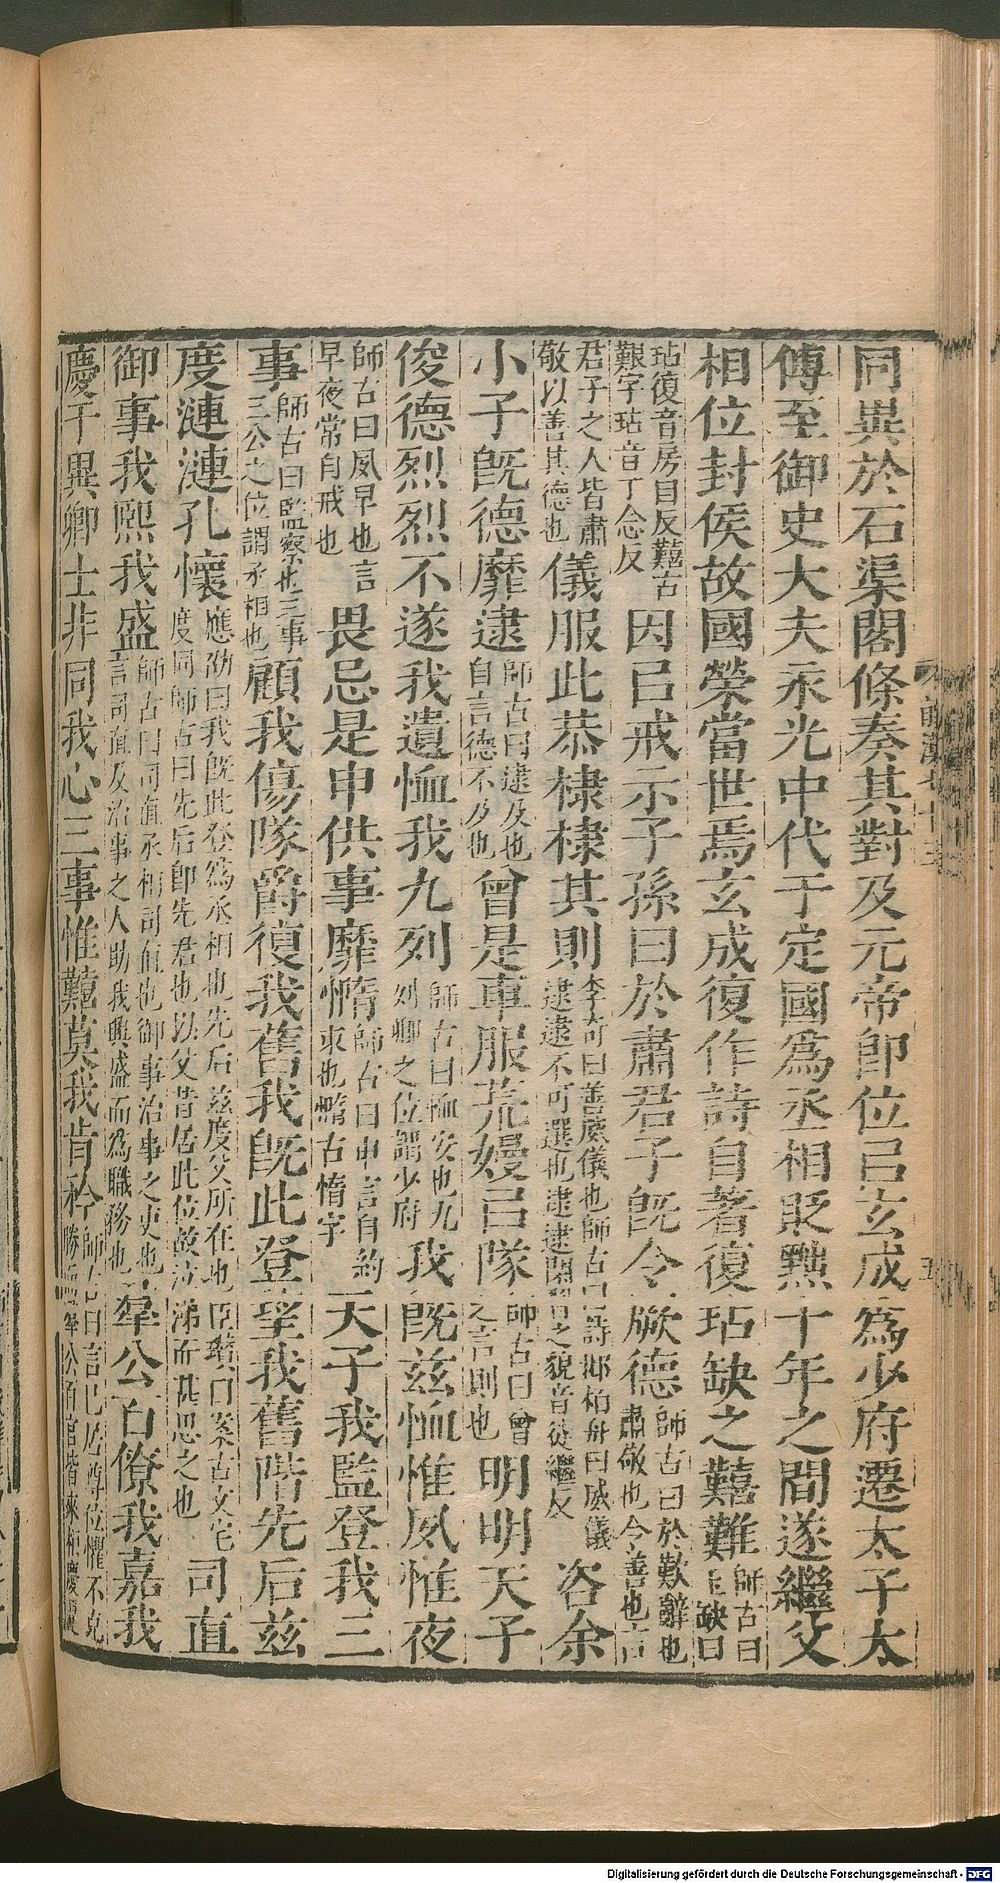 同異於石渠閣條奏其對及元帝卽位㠯玄成爲少府遷太子太
傅至御史大夫永光中代于定國爲丞相貶黜十年之間遂繼父
相位封侯故國榮當世焉玄成復作詩自著復玷缺之囏難師古曰玉缺曰
玷復音房目反囏古艱字玷音丁念反因㠯戒示子孫曰於肅君子旣令厥德師古曰於歎辭也肅敬也令善也言
君子之人皆肅敬以善其德也儀服此恭棣棣其則李奇曰善威儀也師古曰詩邶柏舟曰威儀逮逮不可選也逮逮閑習之貌音徒繼反咨余
小子旣德靡逮師古曰逮及也自言德不及也曾是車服荒嫚㠯隊師古曰曾之言則也明明天子
俊德烈烈不遂我遺恤我九列師古曰恤安也九列卿之位謂少府我旣茲恤惟夙惟夜
師古曰夙早也言早夜常自戒也畏忌是申供事靡惰師古曰申言自約束也惰古惰字天子我監登我三
事師古曰監察也三事三公之位謂丞相也顧我傷隊爵復我舊我旣此登望我舊階先后茲
度漣漣孔懷應劭曰我旣此登爲丞相也先后茲度父所在也臣瓚曰案古文宅度同師古曰先后卽先君也以父昔居此位故泣涕而甚思之也司直
御事我熙我盛師古曰司直丞相司直也御事治事之吏也言司直及治事之人助我興盛而爲職務也羣公百僚我嘉我
慶于異卿士非同我心三事惟囏莫我肯矜師古曰言己居尊位懼不克勝羣公百官皆來相慶
前漢七十三
五
Digitalisierung gefördert durch die Deutsche Forschungsgemeinschaft - DFG